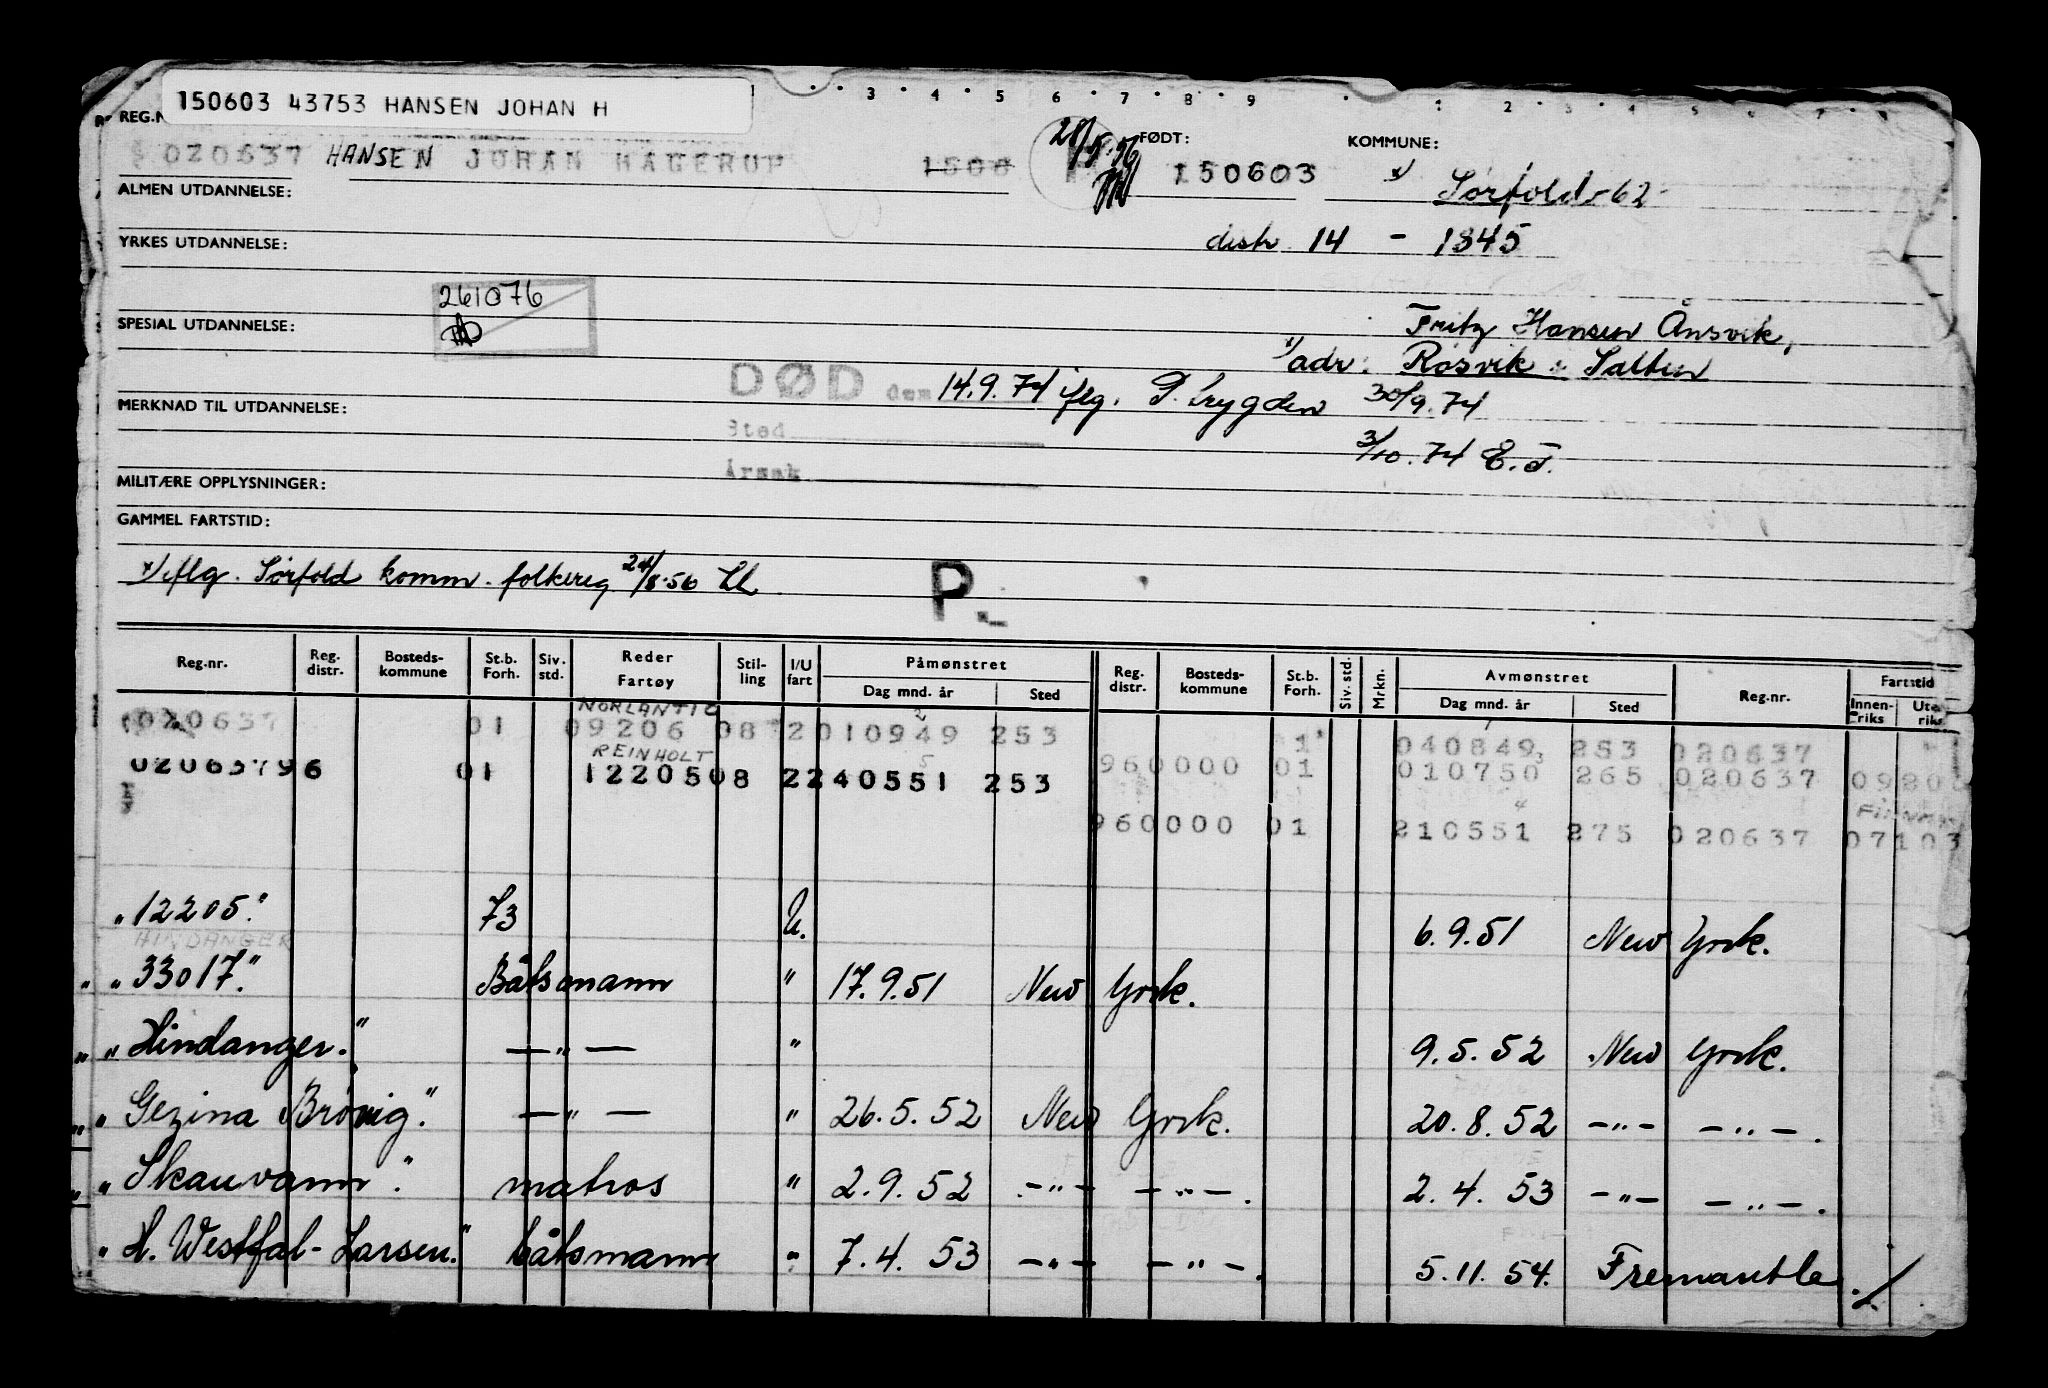 150603 43753 HANSEN JOHAN H
3 4 5 6 7 8 9 1 2 3 4 5 6 7 8
REG.N
020637 HANSEN JOHAN HAGERUP 1506 28/5.56 FØDT: 150603 KOMMUNE: x) Sørfold-62
ALMEN UTDANNELSE:
YRKES UTDANNELSE: distr. 14 - 1845
261076
SPESIAL UTDANNELSE:
Fritz Hansen Ånsvik,
x) adr: Røsvik i Salten
DØD den 14.9.74 iflg. P. Trygden 30/9.74
MERKNAD TIL UTDANNELSE:
Sted
3/10.74 E.T.
Årsak
MILITÆRE OPPLYSNINGER:
GAMMEL FARTSTID:
x) iflg. Sørfold komm. folkereg 24/8.56
P.
Reg.nr. Reg. distr. Bosteds-kommune St.b. Forh. Siv. std. Reder Fartøy Stil-ling I/U fart Påmønstret Reg. distr. Bosteds-kommune St.b. Forh. Siv. std. Mrkn. Avmønstret Reg.nr. Fartstid
Dag mnd. år Sted Dag mnd. år Sted Innen-riks Uten riks
NORLANTIC
020637 01 09206 08 2 010949 253 1 040849 253 020637
REINHOLT
02063796 01 12205 08 2 240551 253 960000 01 010750 265 020637 0920
FINNM
960000 01 210551 275 020637 07103
" 12205." 73 U. 6.9.51 New York.
HINDANGER
" " 33017." Båtsmann " 17.9.51 New York.
" " Hindanger." — " — " 9.5.52 New York.
" " Gezina Brøvig." — " — " 26.5.52 New York. 20.8.52 — " — — " — .
" " Skauvann". matros " 2.9.52 — " — — " — . 2.4.53 — " — — " — .
" H. Westfal-Larsen." båtsmann " 7.4.53 — " — — " — . 5.11.54. Fremantle ./